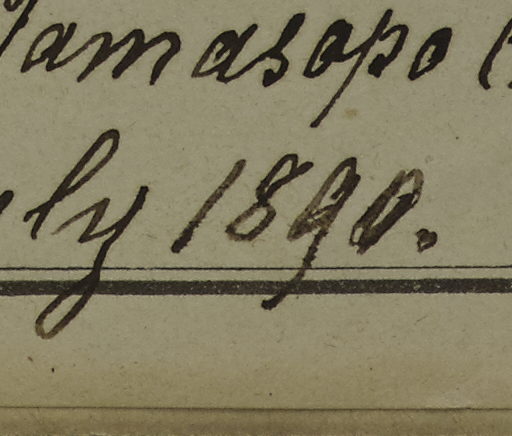 Tamasopo (
ly 1890.